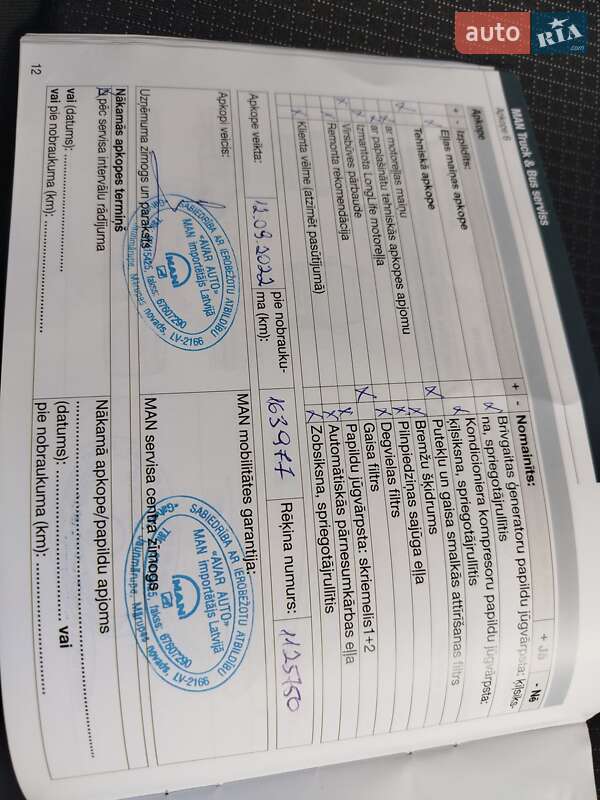 auto
RIA
.com
MAN Truck & Bus serviss
Apkope 6
Apkope
+ Jā - Nē
+ - Izpildīts:
Eļļas maiņas apkope
Tehniskā apkope
ar motoreļļas maiņu
ar paplašinātu tehniskās apkopes apjomu
Izmantota LongLife motoreļļa
Virsbūves pārbaude
Remonta rekomendācija
Klienta vēlme (atzīmēt pasūtījumā)
+ - Nomainīts:
Brīvgaitas ģeneratoru papildu jūgvārpsta: ķīļsiks-
na, spriegotājrullītis
Kondicioniera kompresoru papildu jūgvārpsta:
ķīļsiksna, spriegotājrullītis
Putekļu un gaisa smalkās attīrīšanas filtrs
Bremžu šķidrums
Pilnpiedziņas sajūga eļļa
Degvielas filtrs
Gaisa filtrs
Papildu jūgvārpsta: skriemelis1+2
Automātiskās pārnesumkārbas eļļa
Zobsiksna, spriegotājrullītis
Apkope veikta: 12.09.2022 pie nobrauku-
ma (km): 163977 Rēķina numurs: 1125750
Apkopi veicis:
Uzņēmuma zīmogs un paraksts
SABIEDRĪBA AR IEROBEŽOTU ATBILDĪBU
"AVAR AUTO"
MAN importētājs Latvijā
MAN
fakss: 67607290
Mārupes novads, LV-2166
MAN mobilitātes garantija:
MAN servisa centra zīmogs
SABIEDRĪBA AR IEROBEŽOTU ATBILDĪBU
"AVAR AUTO"
MAN importētājs Latvijā
MAN
fakss: 67607290
Mārupes novads, LV-2166
Nākamās apkopes termiņš
pēc servisa intervālu rādījuma
vai (datums):
vai pie nobraukuma (km):
Nākamā apkope/papildu apjoms
(datums): vai
pie nobraukuma (km):
12